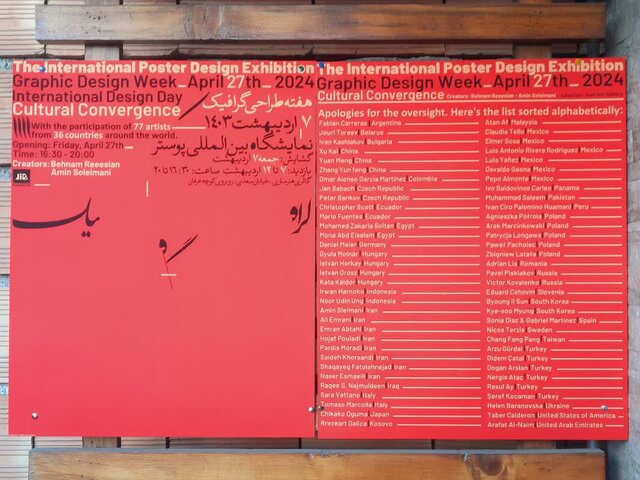 The International Poster Design Exhibition
Graphic Design Week_April 27th_ 2024
International Design Day
Cultural Convergence
هفته طراحی گرافیک
With the participation of 77 artists
from 36 countries around the world.
۷ اردیبهشت ۱۴۰۳
Opening: Friday, April 27th
Time: 16:30 - 20:00
نمایشگاه بین‌المللی پوستر
Creators: Behnam Reeesian
Amin Soleimani
گشایش: جمعه ۷ اردیبهشت
بازدید: ۷ تا ۱۲ اردیبهشت ساعت: ۱۶:۳۰ تا ۲۰
The International Poster Design Exhibition
Graphic Design Week_April 27th_ 2024
Cultural Convergence Creators: Behnam Reeesian Amin Soleimani
Apologies for the oversight. Here's the list sorted alphabetically:
Fabián Carreras Argentina
Jouri Toreev Belarus
Ivan Kashlakov Bulgaria
Xu Kai China
Yuan Meng China
Zhang Yun feng China
Omar Alonso García Martínez Colombia
Jan Šabach Czech Republic
Peter Bankov Czech Republic
Christopher Scott Ecuador
Mario Fuentes Ecuador
Mohamed Zakaria Soltan Egypt
Mona Abd Elsalam Egypt
Daniel Meier Germany
Gyula Molnár Hungary
István Horkay Hungary
István Orosz Hungary
Kata Káldor Hungary
Irwan Harnoko Indonesia
Noor Udin Ung Indonesia
Amin Sleimani Iran
Ali Emrani Iran
Emran Abtahi Iran
Hojat Pouladi Iran
Pardis Moradi Iran
Saideh Khorsandi Iran
Shaqayeq Fatolahnejad Iran
Naser Esmaeili Iran
Raqee S. Najmuldeen Iraq
Sara Vattano Italy
Tomaso Marcolla Italy
Chikako Oguma Japan
Rrezeart Galica Kosovo
Atan At Malaysia
Claudia Tello Mexico
Elmer Sosa Mexico
Luis Antonio Rivera Rodríguez Mexico
Luis Yáñez Mexico
Osvaldo Gaona Mexico
Pepo Almonte Mexico
Ivo Baldovinos Carleo Panama
Muhammad Saleem Pakistan
Ivan Ciro Palomino Huamani Peru
Agnieszka Półrola Poland
Arek Marcinkowski Poland
Patrycja Longawa Poland
Paweł Pacholec Poland
Zbigniew Latała Poland
Adrian Lis Romania
Pavel Pisklakov Russia
Victor Kovalenko Russia
Eduard Čehovin Slovenia
Byoung il Sun South Korea
Kye-soo Myung South Korea
Sonia Diaz & Gabriel Martinez Spain
Nicos Terzis Sweden
Chang Fang Pang Taiwan
Arzu Gürdal Turkey
Didem Çatal Turkey
Dogan Arslan Turkey
Nergis Ataç Turkey
Resul Ay Turkey
Şeref Kocaman Turkey
Helen Baranovska Ukraine
Taber Calderon United States of America
Arafat Al-Naim United Arab Emirates